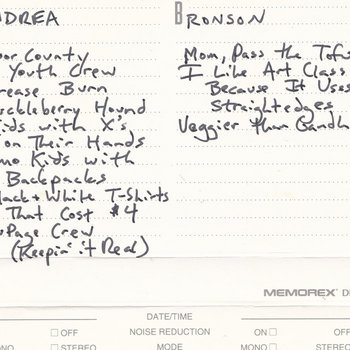 NDREA
oor County
Youth Crew
rease Burn
uckleberry Hound
ids with X's
on Their Hands
mo Kids with
Backpacks
lack + White T-Shirts
That Cost $4
uPage Crew
(Keepin' it Real)
BRONSON
Mom, Pass the Tofu
I Like Art Class
Because It Uses
Straightedges
Veggier than Gandh
MEMOREX D
DATE/TIME
OFF NOISE REDUCTION ON OFF
NO STEREO MODE MONO STEREO